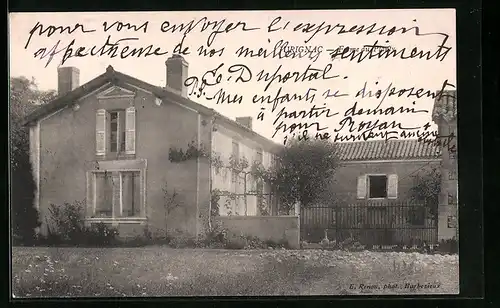 pour vous envoyer l'expression
affectueuse de nos meilleurs sentiments
JURIGNAC
E. Duportal.
P.S. Mes enfants se disposent
à partir demain
pour Royan
E. Renou, phot., Barbezieux